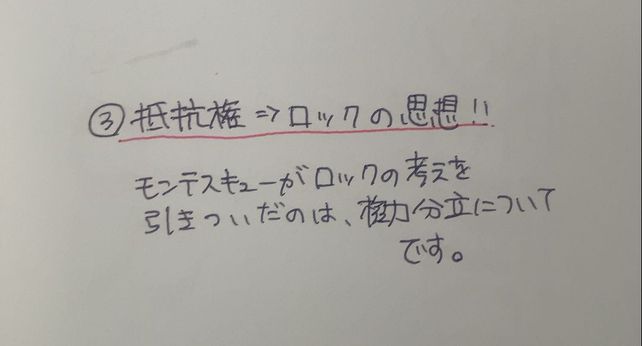 ③ 抵抗権⇒ロックの思想!!
モンテスキューがロックの考えを
引きついだのは、権力分立について
です。